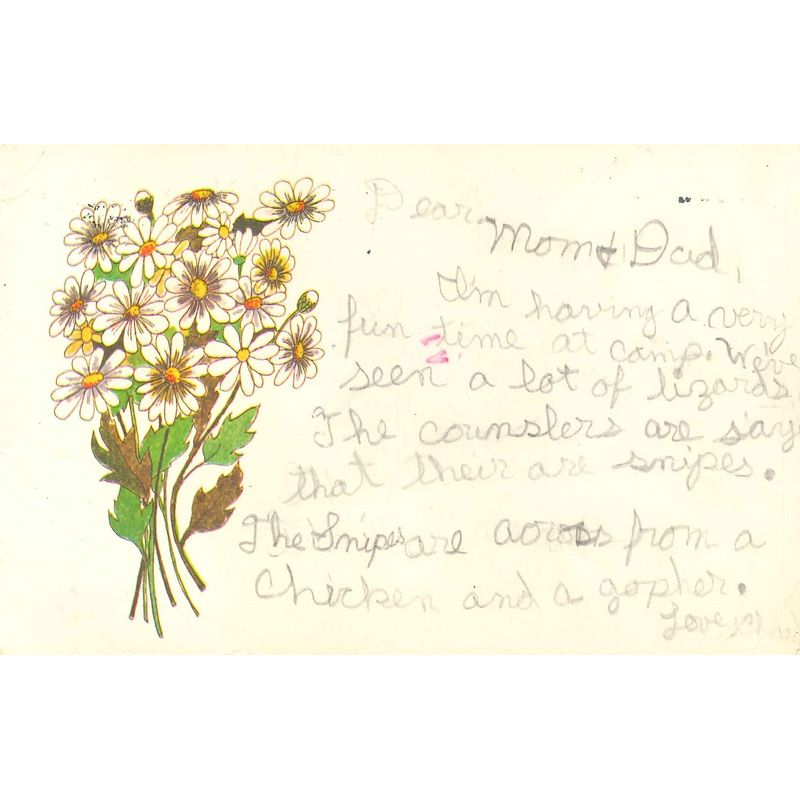 Dear
Mom & Dad,
I'm having a very
fun time at camp. We've
seen a lot of lizards
The counslers are say
that their are snipes.
The Snipes are across from a
Chicken and a gopher.
Love,